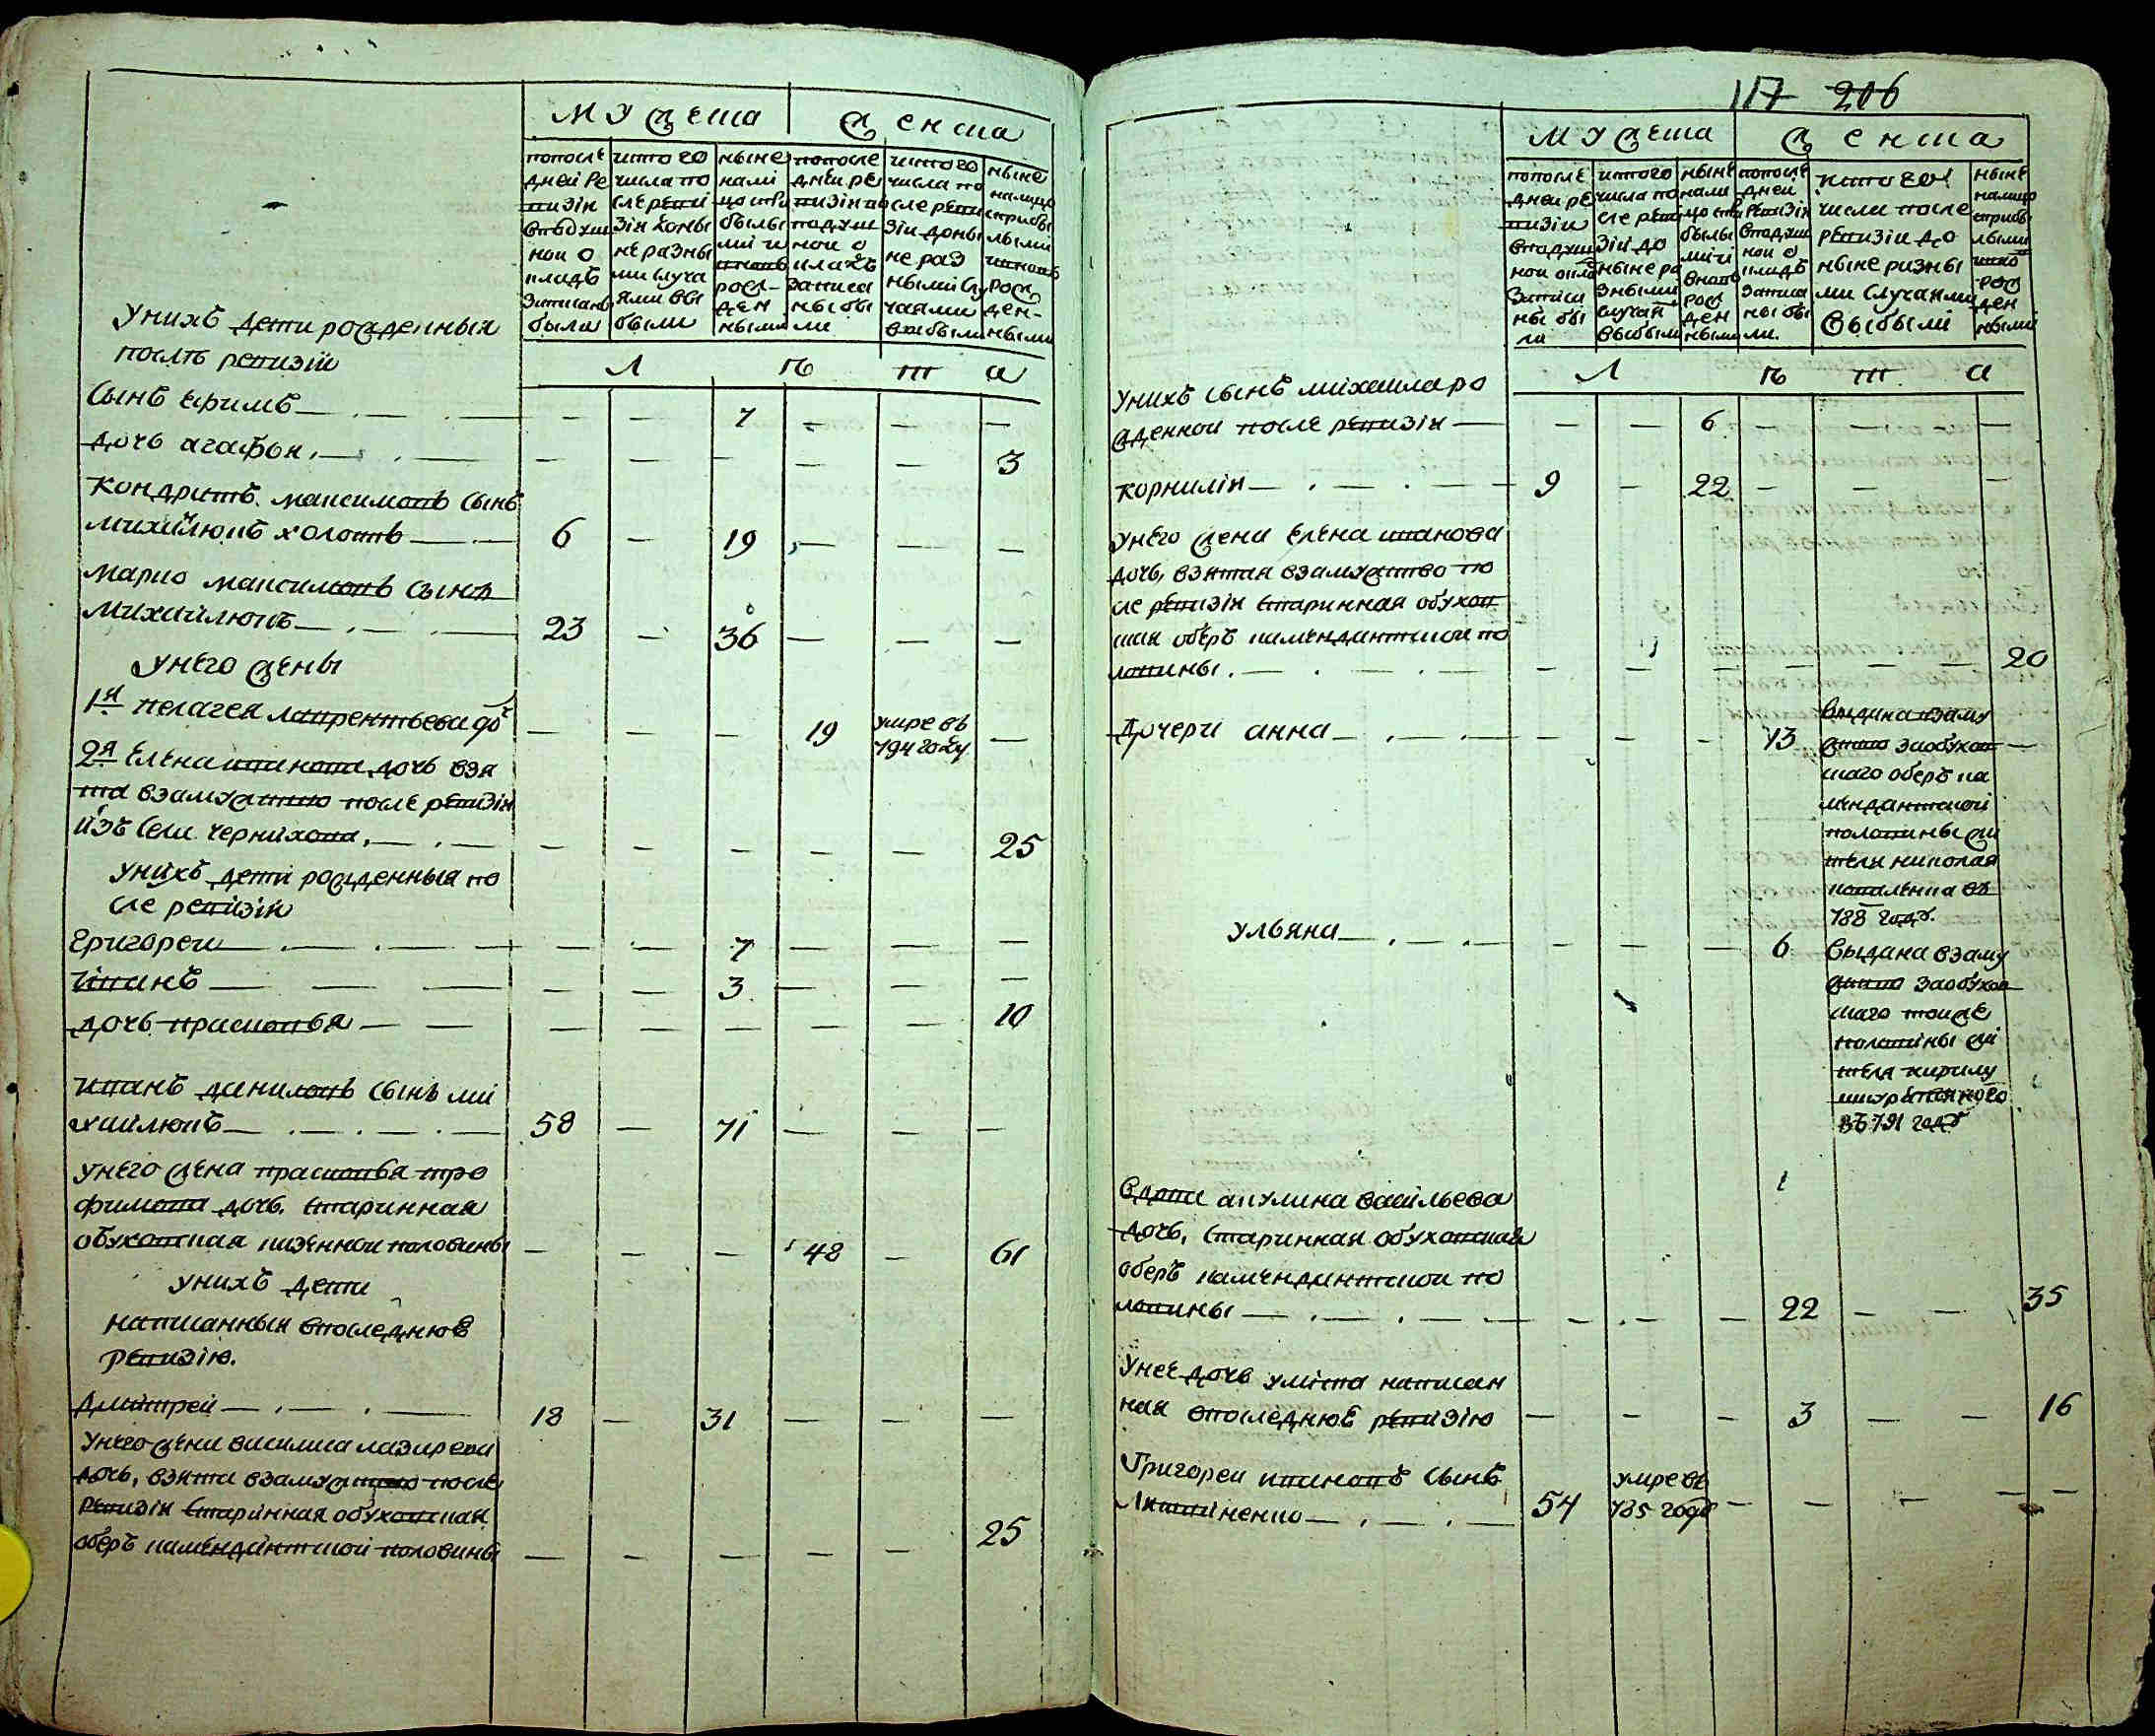 мужеска
женска
попосле
дней ре
визіи
вподуш
ной о
кладъ
записаны
были
изтого
числа по
сле реви
зіи доны
не разны
ми случа
ями вы
были
ныне
нали
цо спри
былыми и
вновь
рож-
ден
ными
попосле
дней ре
визіи в
подуш
ной о
кладъ
записа
ны бы
ли
изтого
числа по
сле реви
зіи доны
не раз
ными слу
чаями
выбыли
ныне
налицо
сприбы
лыми
ивновь
рож
ден-
ными
Л ѣ т а
Унихъ дети рожденныя
послѣ ревизіи
Сынъ ефимъ 7
дочь агафья 3
Кондратъ максимовъ сынъ
михайлювъ холостъ 6 19
Марко максимовъ сынъ
Михайлювъ 23 36
Унего жены
1я пелагея лаврентьева доч 19 умре въ
794 году
2я Елена иванова дочь взя
та взамужство после ревизіи
изъ села черняхова 25
Унихъ дети рожденныя по
сле ревизіи
Григореи 7
Иванъ 3
дочь прасковья 10
Иванъ даниловъ сынъ ми
хайлювъ 58 71
унего жена прасковья тро
фимова дочь старинная
обуховская казенной половины 48 61
унихъ дети
написанныя впоследнюю
ревизію.
Дмитрей 18 31
Унего жена василиса лазарева
дочь, взята взамужство после
ревизіи старинная обуховская
оберъ камендантской половины 25
117 206
мужеска
женска
попосле
дней ре
визіи
вподуш
ной окла
записа
ны бы
ли
изтого
числа по
сле реви
зіи до
ныне ра
зными
случаи
выбыли
ныне
нали
цо спри
былы
ми и
вновь
рож
ден
ными
попосле
дней
ревизіи
вподуш
ной о
кладъ
записа
ны бы
ли.
изтого
числа после
ревизіи до
ныне разны
ми случаями
выбыли
ныне
налицо
сприбы
лыми
ивновь
рож
ден
ными
Л ѣ т а
Унихъ сынъ михаила ро
жденной после ревизіи 6
Корнилій 9 22
унего жена Елена иванова
дочь, взятая взамужство по
сле ревизіи старинная обухов
ская оберъ камендантской по
ловины 20
Дочери анна 13 выдана взаму
жство заобухов
скаго оберъ ка
мендантской
половины жи
теля николая
коваленка въ
788 годѣ.
ульяна 6 выдана взаму
жство заобухов
скаго тоиже
половины жи
теля кирилу
въ 791 годѣ
вдова акулина васильева
дочь, старинная обуховская
оберъ камендантской по
ловины 22 35
Унее дочь улита написан
ная впоследнюю ревизію 3 16
Григореи ивановъ сынъ
54 умре въ
785 годѣ